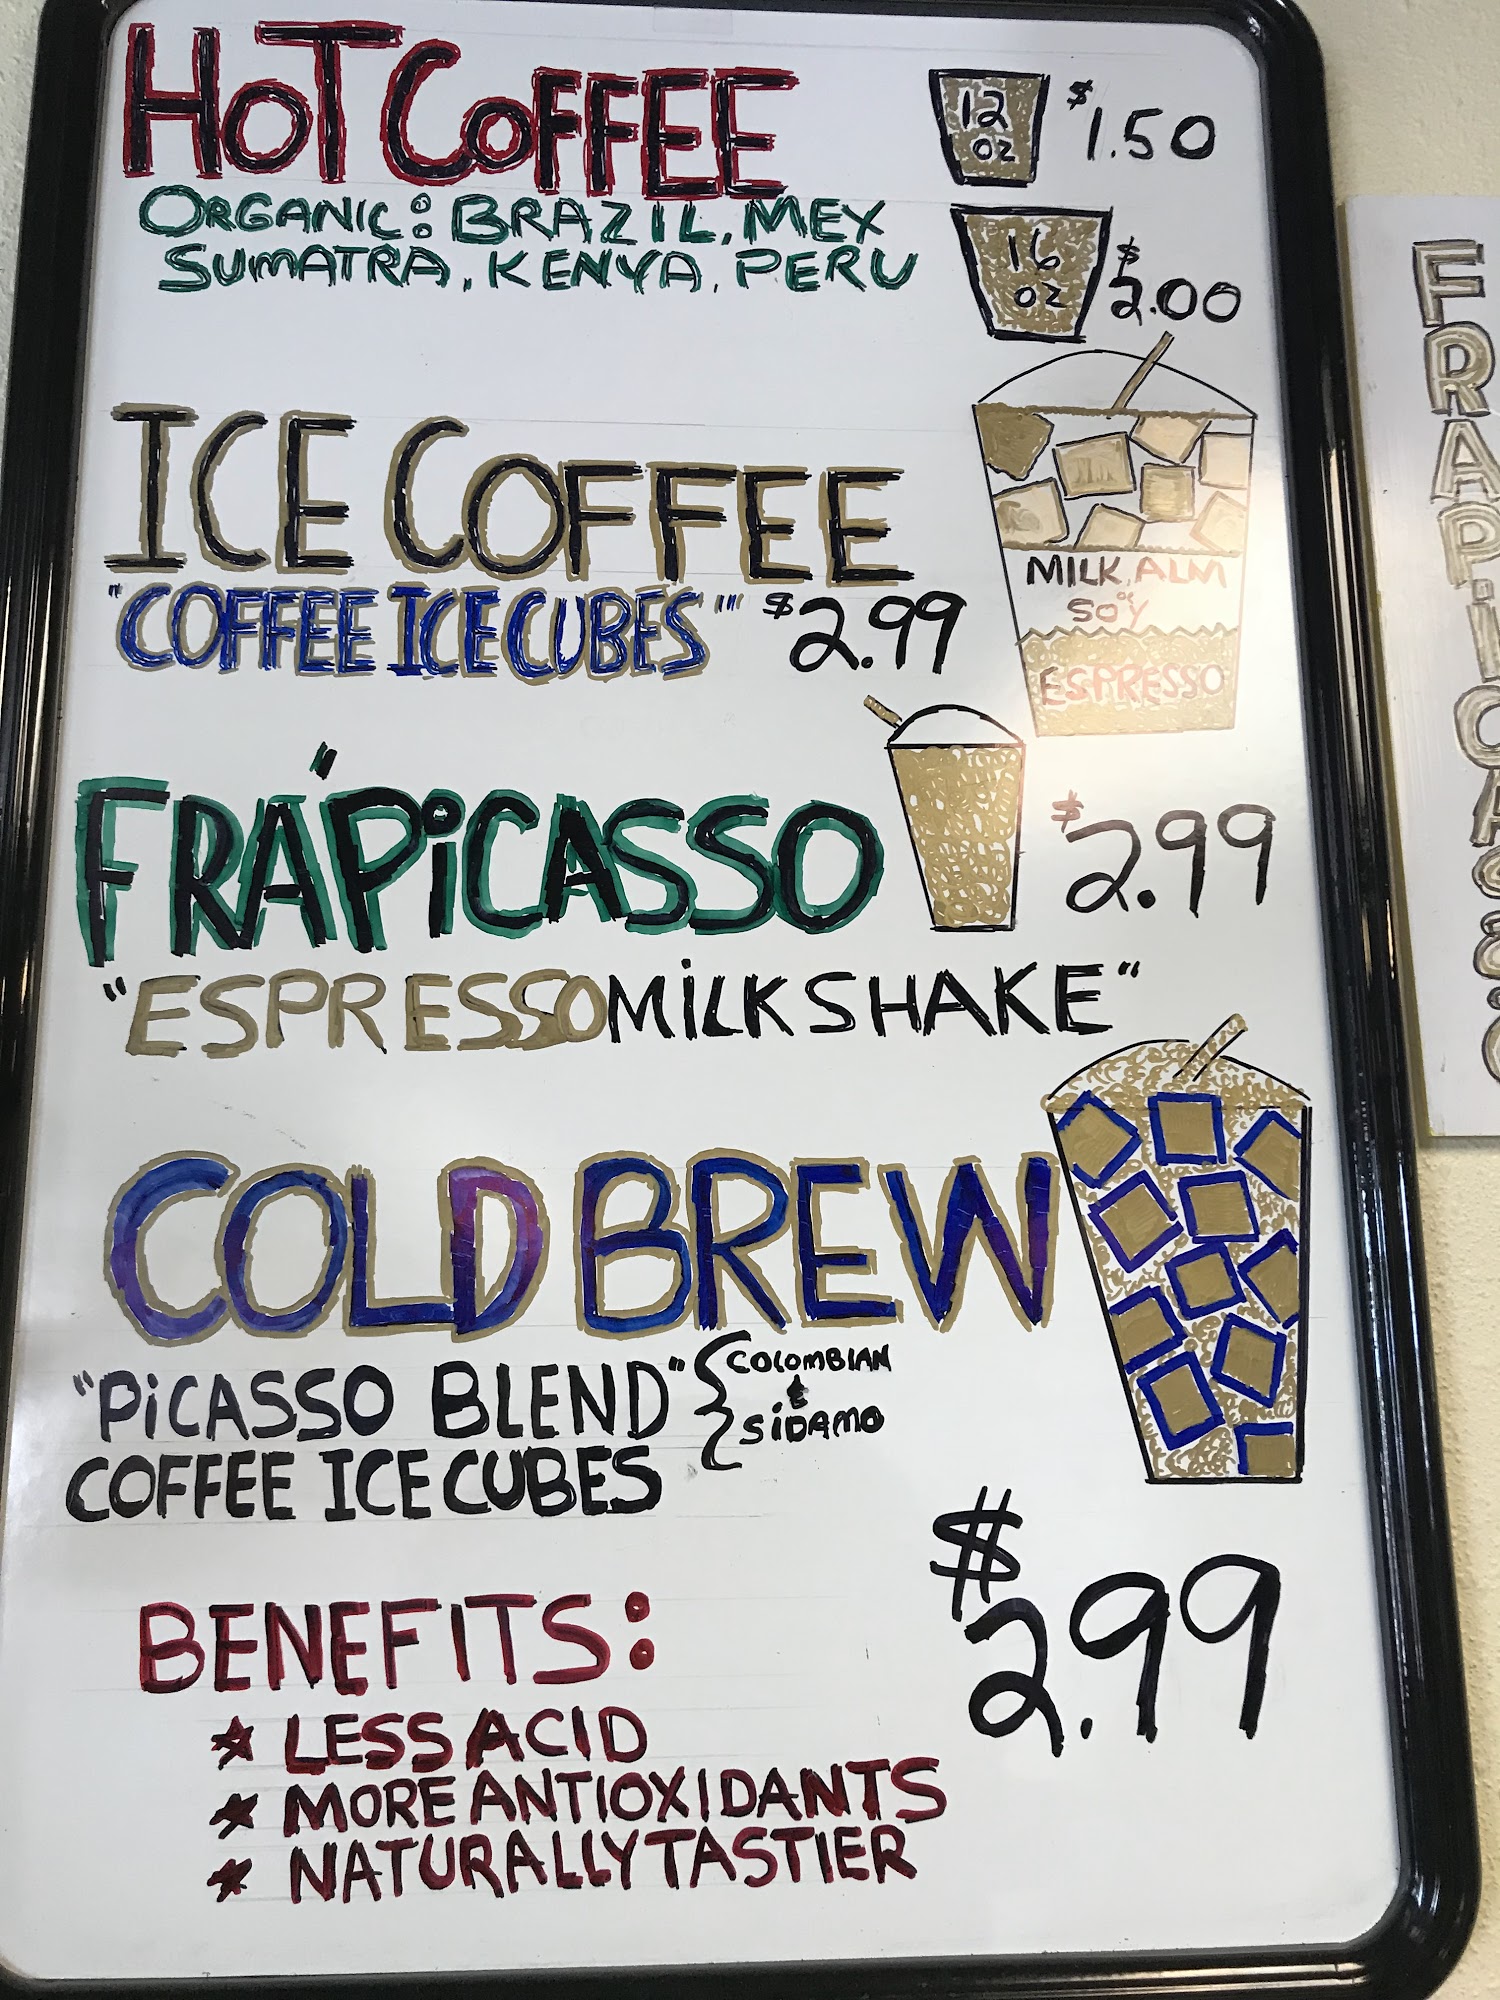 HOT COFFEE
12 OZ $1.50
ORGANIC: BRAZIL, MEX
SUMATRA, KENYA, PERU
16 OZ $2.00
ICE COFFEE
"COFFEE ICE CUBES" $2.99
MILK, ALM
or
SOY
ESPRESSO
"
FRAPiCASSO $2.99
"ESPRESSO MiLKSHAKE"
COLD BREW
"PiCASSO BLEND" { COLOMBIAN
&
SiDAMO
COFFEE ICE CUBES
$2.99
BENEFITS:
* LESS ACID
* MORE ANTIOXIDANTS
* NATURALLY TASTIER
FRAP.iCA